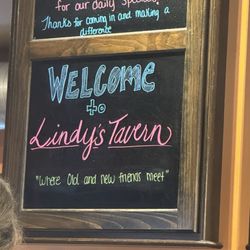 for our daily specials!
Thanks for coming in and making a
difference
WELCOME
to
Lindy's Tavern
"Where Old and new friends meet"